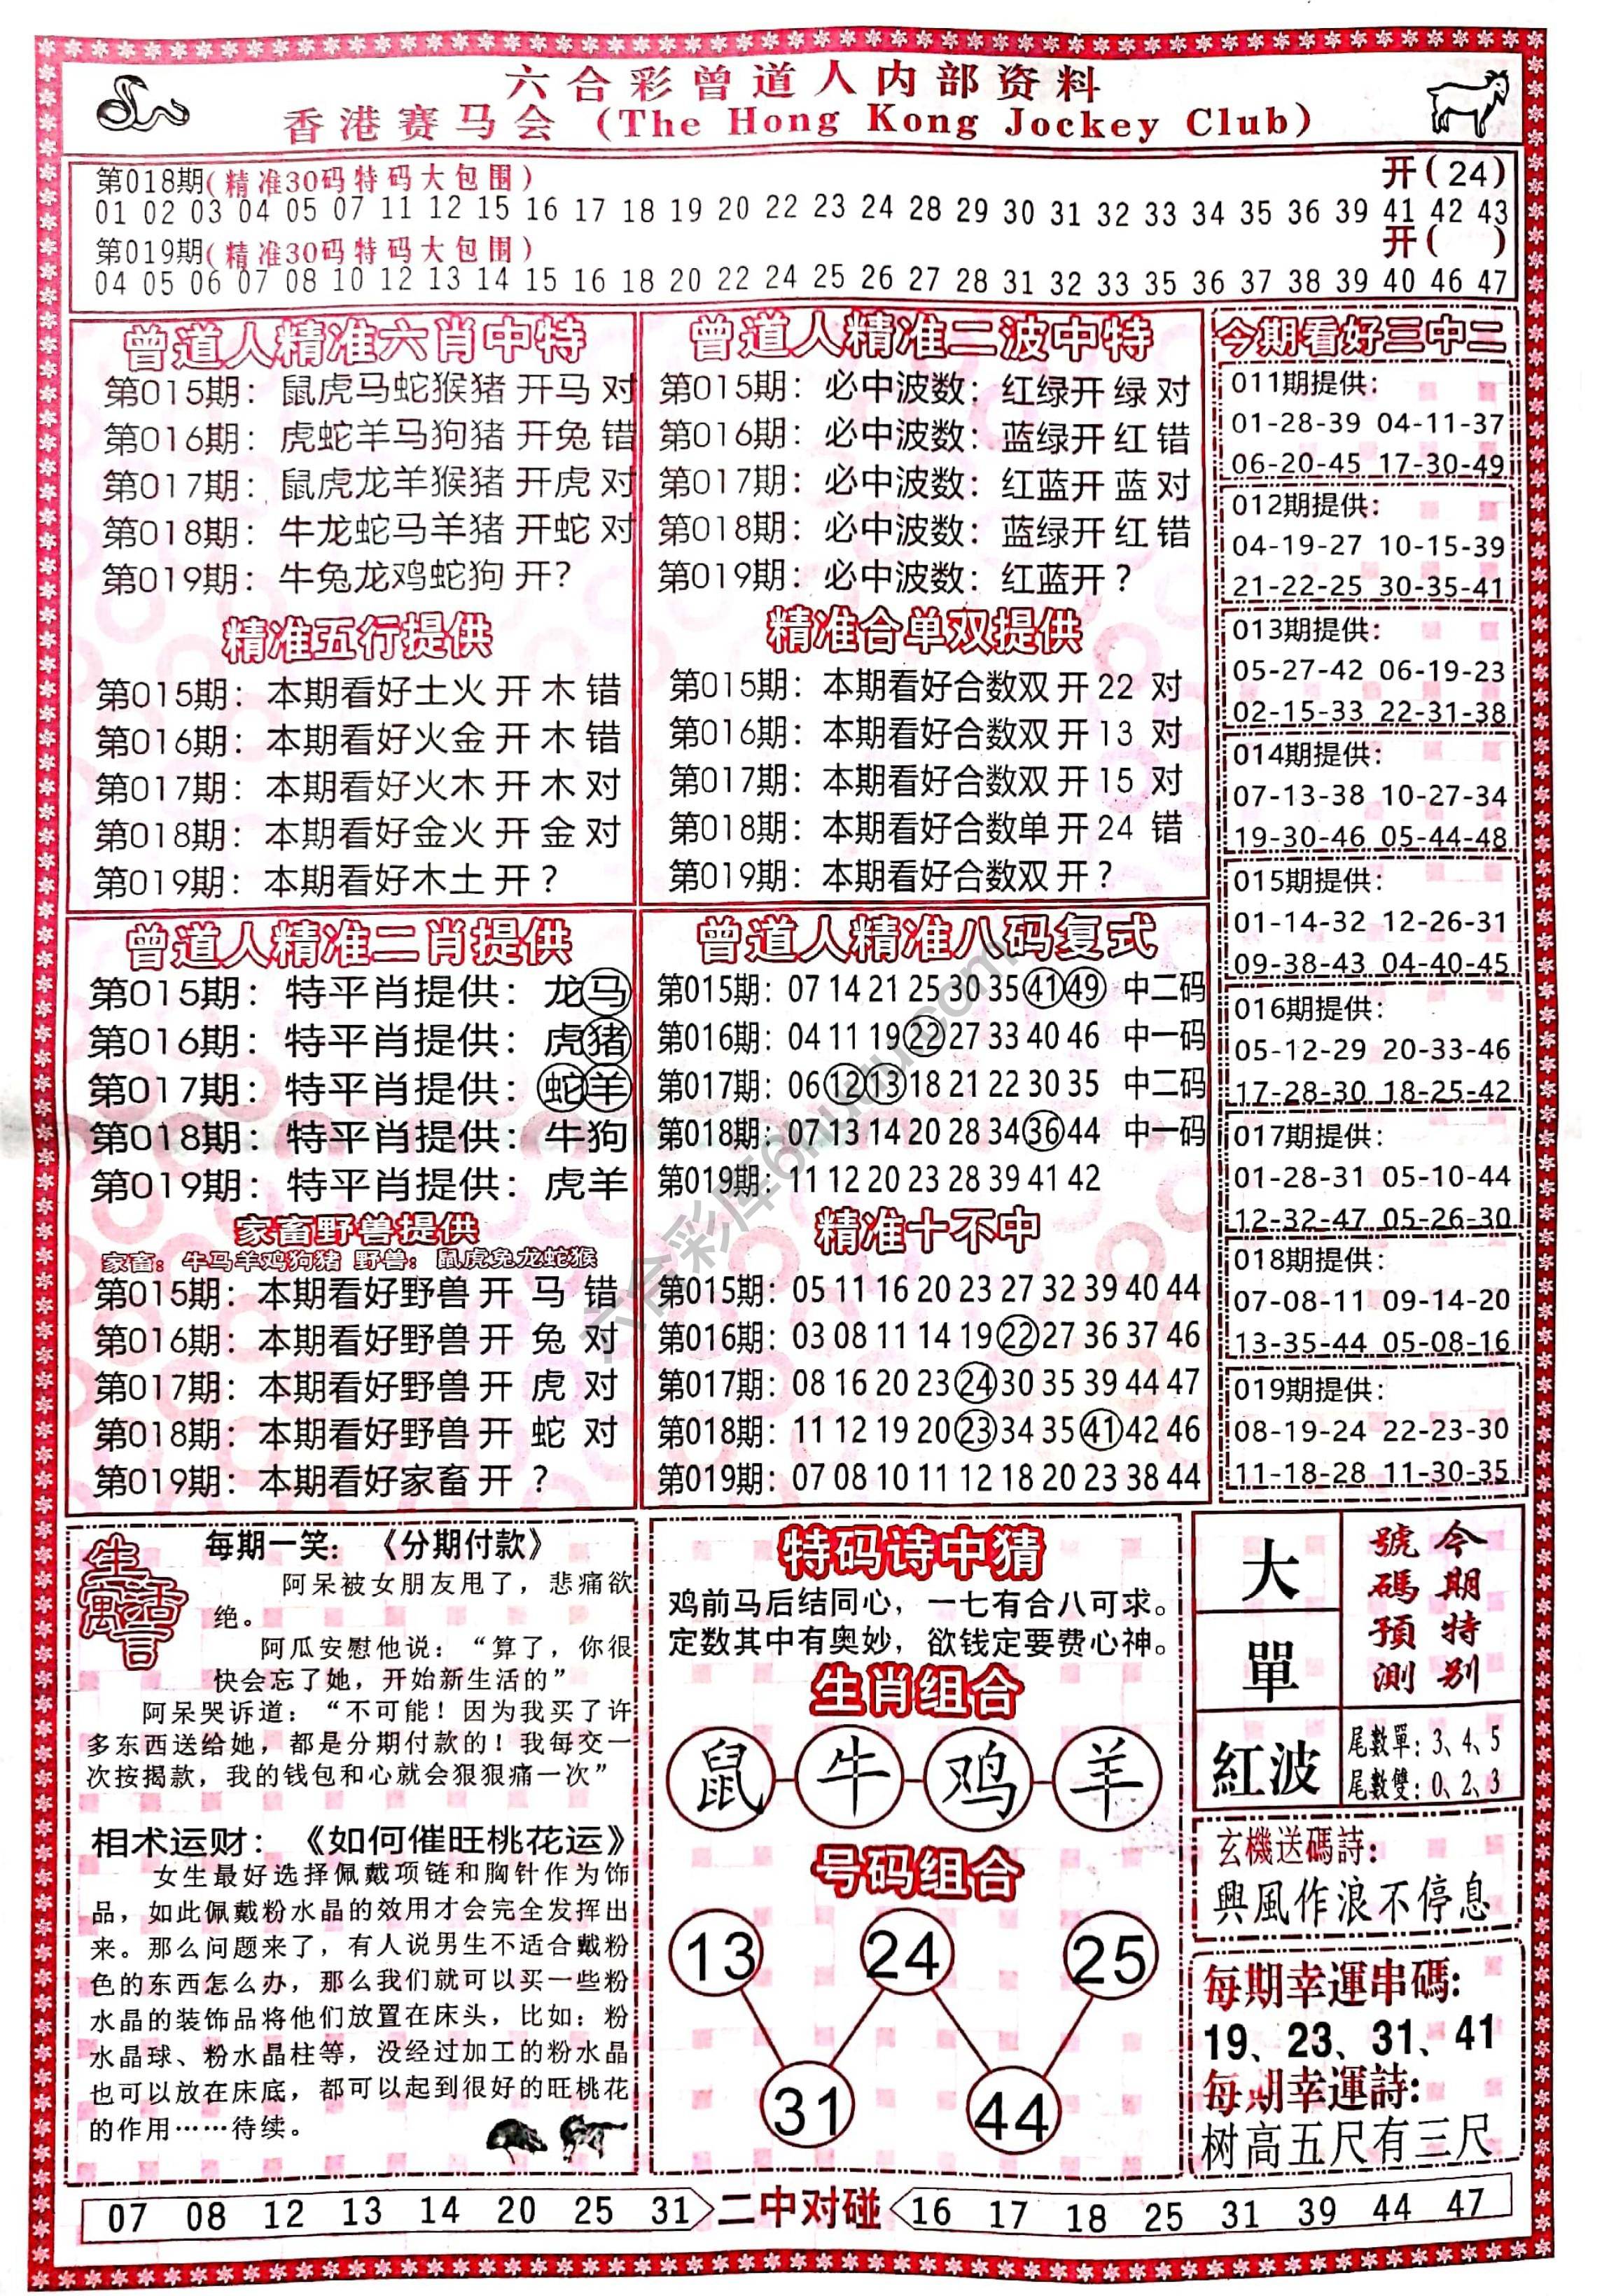 六合彩曾道人内部资料
香港赛马会 (The Hong Kong Jockey Club)
第018期(精准30码特码大包围) 开(24)
01 02 03 04 05 07 11 12 15 16 17 18 19 20 22 23 24 28 29 30 31 32 33 34 35 36 39 41 42 43
第019期(精准30码特码大包围) 开( )
04 05 06 07 08 10 12 13 14 15 16 18 20 22 24 25 26 27 28 31 32 33 35 36 37 38 39 40 46 47
曾道人精准六肖中特
第015期：鼠虎马蛇猴猪 开马 对
第016期：虎蛇羊马狗猪 开兔 错
第017期：鼠虎龙羊猴猪 开虎 对
第018期：牛龙蛇马羊猪 开蛇 对
第019期：牛兔龙鸡蛇狗 开？
精准五行提供
第015期：本期看好土火 开 木 错
第016期：本期看好火金 开 木 错
第017期：本期看好火木 开 木 对
第018期：本期看好金火 开 金 对
第019期：本期看好木土 开？
曾道人精准二波中特
第015期：必中波数：红绿开 绿 对
第016期：必中波数：蓝绿开 红 错
第017期：必中波数：红蓝开 蓝 对
第018期：必中波数：蓝绿开 红 错
第019期：必中波数：红蓝开？
精准合单双提供
第015期：本期看好合数双 开 22 对
第016期：本期看好合数双 开 13 对
第017期：本期看好合数双 开 15 对
第018期：本期看好合数单 开 24 错
第019期：本期看好合数双 开？
今期看好三中二
011期提供：
01-28-39 04-11-37
06-20-45 17-30-49
012期提供：
04-19-27 10-15-39
21-22-25 30-35-41
013期提供：
05-27-42 06-19-23
02-15-33 22-31-38
014期提供：
07-13-38 10-27-34
19-30-46 05-44-48
015期提供：
01-14-32 12-26-31
09-38-43 04-40-45
016期提供：
05-12-29 20-33-46
17-28-30 18-25-42
017期提供：
01-28-31 05-10-44
12-32-47 05-26-30
018期提供：
07-08-11 09-14-20
13-35-44 05-08-16
019期提供：
08-19-24 22-23-30
11-18-28 11-30-35
曾道人精准二肖提供
第015期：特平肖提供：龙马
第016期：特平肖提供：虎猪
第017期：特平肖提供：蛇羊
第018期：特平肖提供：牛狗
第019期：特平肖提供：虎羊
家畜野兽提供
家畜：牛马羊鸡狗猪 野兽：鼠虎兔龙蛇猴
第015期：本期看好野兽 开 马 错
第016期：本期看好野兽 开 兔 对
第017期：本期看好野兽 开 虎 对
第018期：本期看好野兽 开 蛇 对
第019期：本期看好家畜 开 ？
曾道人精准八码复式
第015期：07 14 21 25 30 35 41 49 中二码
第016期：04 11 19 22 27 33 40 46 中一码
第017期：06 12 15 18 21 22 30 35 中二码
第018期：07 13 14 20 28 34 36 44 中一码
第019期：11 12 20 23 28 39 41 42
精准十不中
第015期：05 11 16 20 23 27 32 39 40 44
第016期：03 08 11 14 19 22 27 36 37 46
第017期：08 16 20 23 24 30 35 39 44 47
第018期：11 12 19 20 23 34 35 41 42 46
第019期：07 08 10 11 12 18 20 23 38 44
六合彩库
生活寓言
每期一笑：《分期付款》
阿呆被女朋友甩了，悲痛欲
绝。
阿瓜安慰他说：“算了，你很
快会忘了她，开始新生活的”
阿呆哭诉道：“不可能！因为我买了许
多东西送给她，都是分期付款的！我每交一
次按揭款，我的钱包和心就会狠狠痛一次”
相术运财：《如何催旺桃花运》
女生最好选择佩戴项链和胸针作为饰
品，如此佩戴粉水晶的效用才会完全发挥出
来。那么问题来了，有人说男生不适合戴粉
色的东西怎么办，那么我们就可以买一些粉
水晶的装饰品将他们放置在床头，比如：粉
水晶球、粉水晶柱等，没经过加工的粉水晶
也可以放在床底，都可以起到很好的旺桃花
的作用……待续。
特码诗中猜
鸡前马后结同心，一七有合八可求。
定数其中有奥妙，欲钱定要费心神。
生肖组合
鼠 牛 鸡 羊
号码组合
13 24 25
31 44
大
單
紅波
今期特别
號碼預測
尾數單：3、4、5
尾數雙：0、2、3
玄機送碼詩：
興風作浪不停息
每期幸運串碼：
19、23、31、41
每期幸運詩：
树高五尺有三尺
07 08 12 13 14 20 25 31 二中对碰 16 17 18 25 31 39 44 47